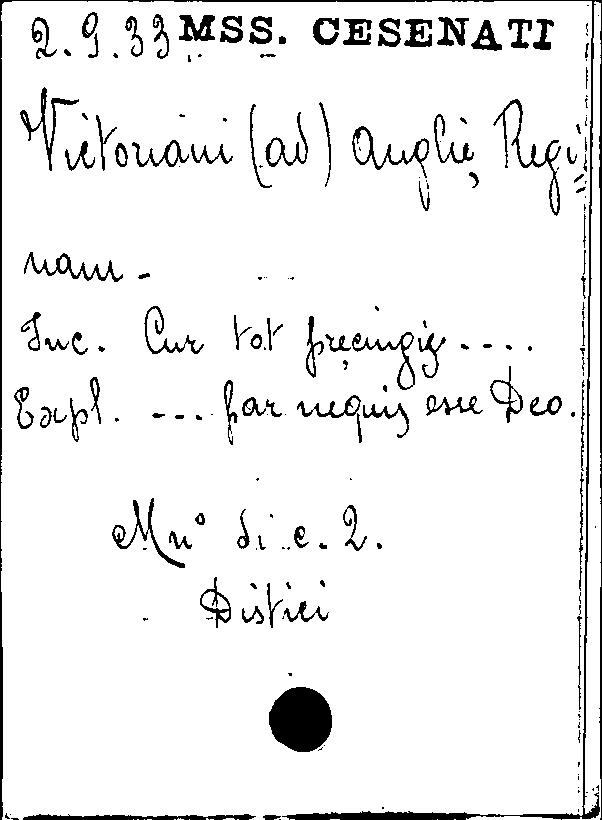 2.9.33 MSS. CESENATI
Victoriam (ad) Anglię Regi=
nam -
Inc. Cur tot pręcingis ....
Expl. --- par nequis esse Deo.
Mnº di c. 2.
Distici